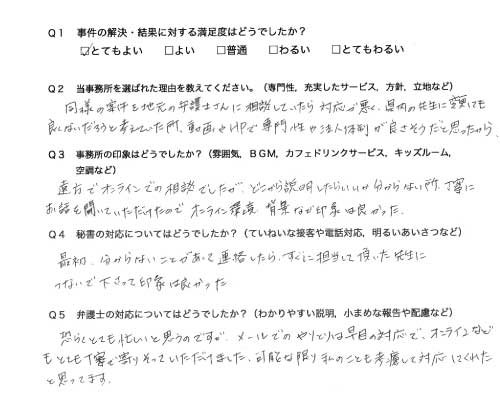 Q1 事件の解決・結果に対する満足度はどうでしたか？
☑とてもよい □よい □普通 □わるい □とてもわるい
Q2 当事務所を選ばれた理由を教えてください。（専門性，充実したサービス，方針，立地など）
同様の案件を地元の弁護士さんに相談していたら対応が悪く、県内の先生に変更しても
良くないだろうと考えていた所、動画やHPで専門性や法人体制が良さそうだと思ったから
Q3 事務所の印象はどうでしたか？（雰囲気，ＢＧＭ，カフェドリンクサービス，キッズルーム，
空調など）
遠方でオンラインでの相談でしたが、どこから説明したらいいか分からない所、丁寧に
お話を聞いていただけたので オンライン環境、背景など印象は良かった。
Q4 秘書の対応についてはどうでしたか？（ていねいな接客や電話対応，明るいあいさつなど）
最初、分からないことがあって連絡したら、すぐに担当して頂いた先生に
つないで下さって印象は良かった
Q5 弁護士の対応についてはどうでしたか？（わかりやすい説明，小まめな報告や配慮など）
恐らくとても忙しいと思うのですが、メールでのやりとりは早目の対応で、オンラインなど
もとても丁寧で寄りそっていただけました。可能な限り私のことも考慮して対応してくれた
と思ってます。